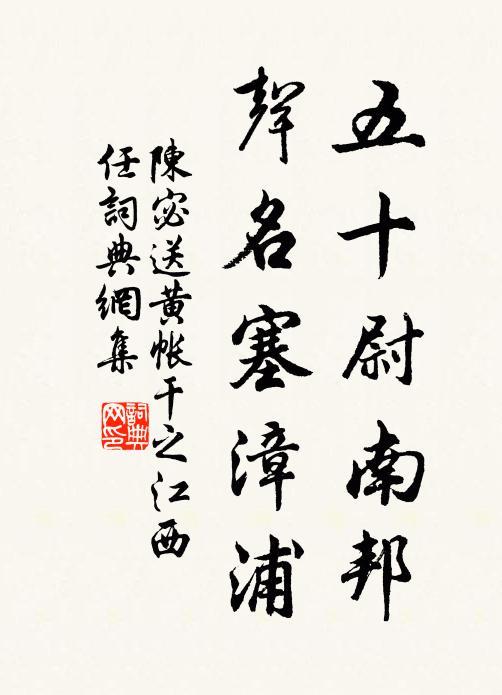 五十尉南邦
聲名塞漳浦
陳宓送黄帐干之江西
任詞典網集
詞典网印